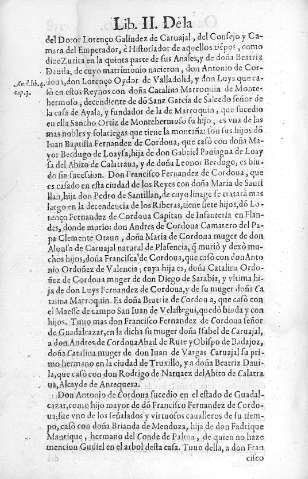 Lib. II. Dela
del Dotor Lorenço Galindez de Caruajal, del Consejo y Ca-
mara del Emperador, è Historiador de aquellos tiẽpos, como
dize Zurita en la quinta parte de sus Anales, y de doña Beatriz
Dauila, de cuyo matrimonio nacieron, don Antonio de Cor-
doua, don Lorenço Oydor de Valladolid, y don Luys que ca-
só en estos Reynos con doña Catalina Marroquin de Monte-
hermoso, decendiente de dõ Sanz Garcia de Salcedo señor de
la casa de Ayala, y fundador de la de Marroquin, que sucedio
en ella Sancho Ortiz de Montehermoso su hijo, es vna de las
mas nobles y solariegas que tiene la montaña: son sus hijos dõ
Iuan Baptista Fernandez de Cordoua, que casó con doña Ma-
yor Berdugo de Loaysa, hija de don Gabriel Paniagua de Loay
sa del Abito de Calatraua, y de doña Leonor Berdugo, es biu-
do sin sucession. Don Francisco Fernandez de Cordoua, que
es casado en esta ciudad de los Reyes con doña Maria de Santi-
llan, hija de don Pedro de Santillan, de cuyo linage se tratará mas
largo en la decendencia de los Riberas, tiene siete hijos, dõ Lo-
renço Fernandez de Cordoua Capitan de Infanteria en Flan-
des, donde mario don Andres de Cordoua Camarero del Pa-
pa Clemente Otauo, doña Maria de Cordoua muger de don
Alonso de Caruajal natural de Plasencia, q̃ murió y dexó mu-
chos hijos, doña Francisca de Cordoua, que casó con don Anto-
nio Ordoñez de Valencia, cuya hija es, doña Catalina Ordo-
ñez de Cordoua muger de don Diego de Sarabia, y vltima hi-
ja de don Luys Fernandez de Cordoua, y de su muger doña Ca
tarina Marroquin. Es doña Beatriz de Cordoua, que casó con
el Maesse de campo San Iuan de Velastegui, quedó biuda y con
hijos. Tuuo mas don Francisco Fernandez de Cordoua señor
de Guadalcazar, en la dicha su muger doña Isabel de Caruajal,
a don Andres de Cordoua Abad de Rute y Obispo de Badajoz,
doña Catalina muger de don Iuan de Vargas Caruajal su pri
mo hermano en la ciudad de Truxillo, y a doña Beatriz Daui-
la, que casó con don Rodrigo de Naruaez del Abito de Calatra
ua, Alcayde de Antequera.
Don Antonio de Cordoua sucedio en el estado de Guadal-
cazar, como hijo mayor de dõ Francisco Fernandez de Cor-
doua; fue vno de los señalados y virtuosos caualleros de su tiem-
po, casó con doña Brianda de Mendoza, hija de don Fadrique
Manrique, hermano del Conde de Palma, de quien no haze
mencion Gudiel en el arbol desta casa. Tuuo della, a don Fran
cisco